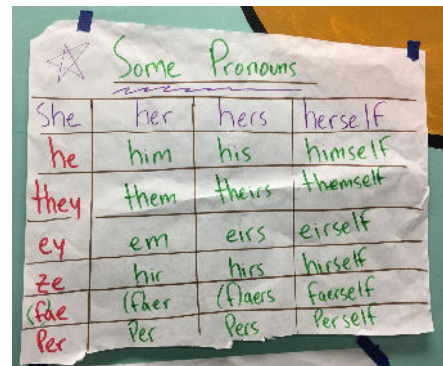 Some Pronouns
She her hers herself
he him his himself
they them theirs themself
ey em eirs eirself
ze hir hirs hirself
(fae (faer (f)aers faerself
Per Per Pers Perself